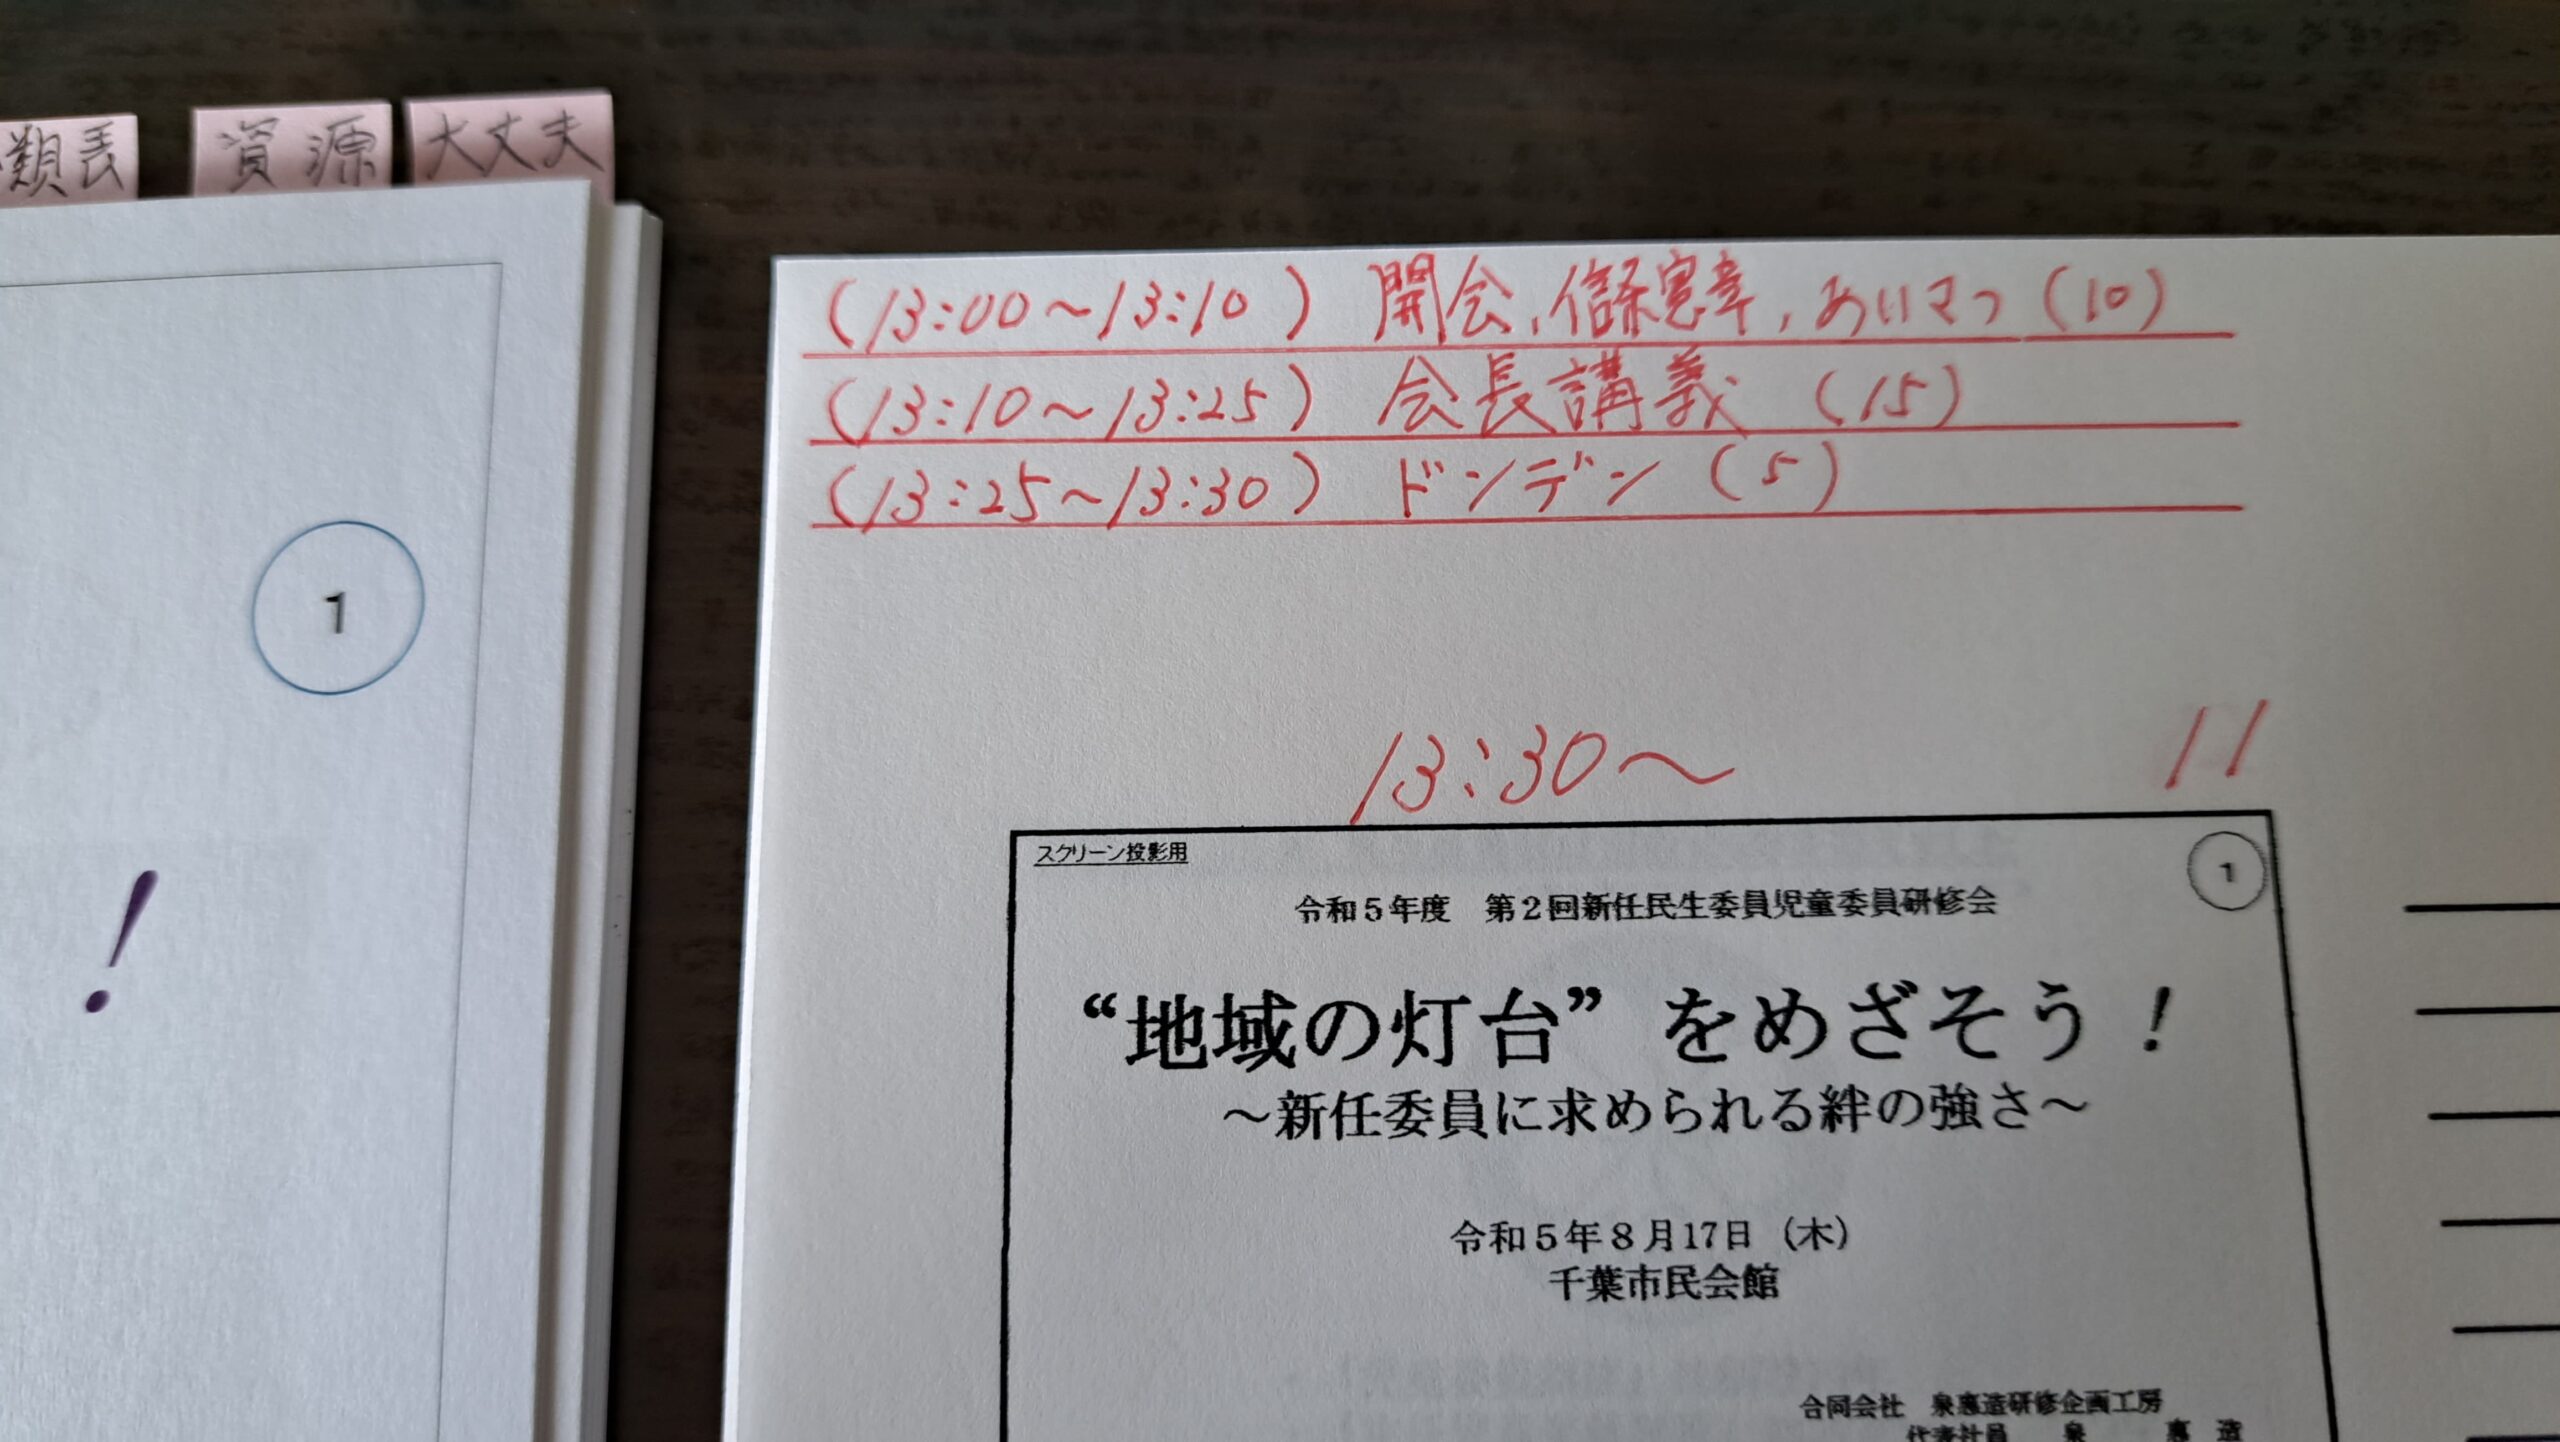 類表
資源
大丈夫
1
!
(13:00～13:10) 開会,信条憲章,あいさつ(10)
(13:10～13:25) 会長講義 (15)
(13:25～13:30) ドンデン(5)
13:30～
11
スクリーン投影用
1
令和5年度 第2回新任民生委員児童委員研修会
“地域の灯台”をめざそう！
～新任委員に求められる絆の強さ～
令和5年8月17日（木）
千葉市民会館
合同会社 泉惠造研修企画工房
代表社員 泉 惠 造